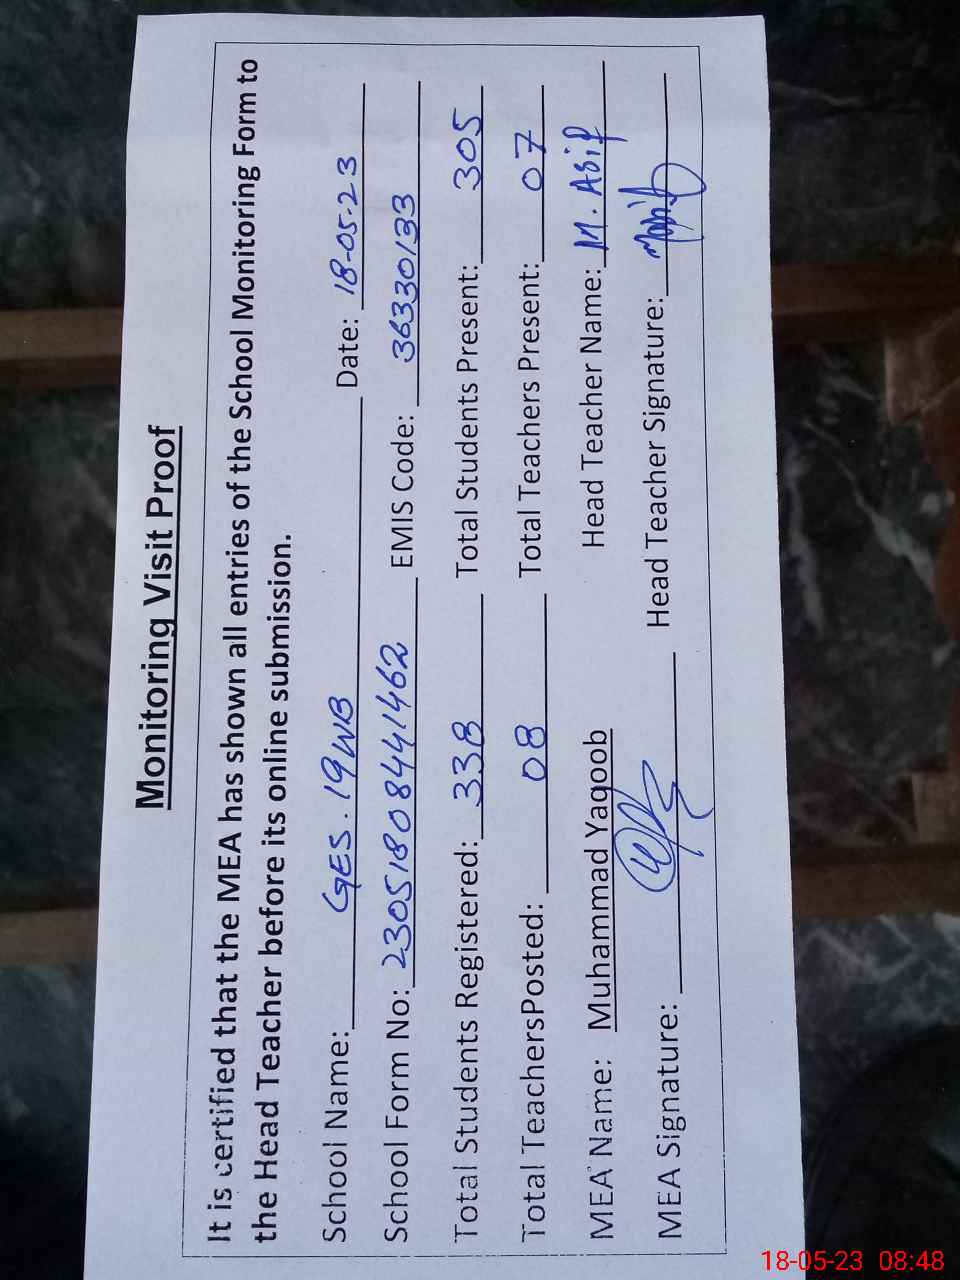 Monitoring Visit Proof
It is certified that the MEA has shown all entries of the School Monitoring Form to
the Head Teacher before its online submission.
School Name: GES. 19WB Date: 18-05-23
School Form No: 23051808441462 EMIS Code: 36330133
Total Students Registered: 338 Total Students Present: 305
Total TeachersPosted: 08 Total Teachers Present: 07
MEA Name: Muhammad Yaqoob Head Teacher Name: M. Asif
MEA Signature: Head Teacher Signature:
18-05-23 08:48